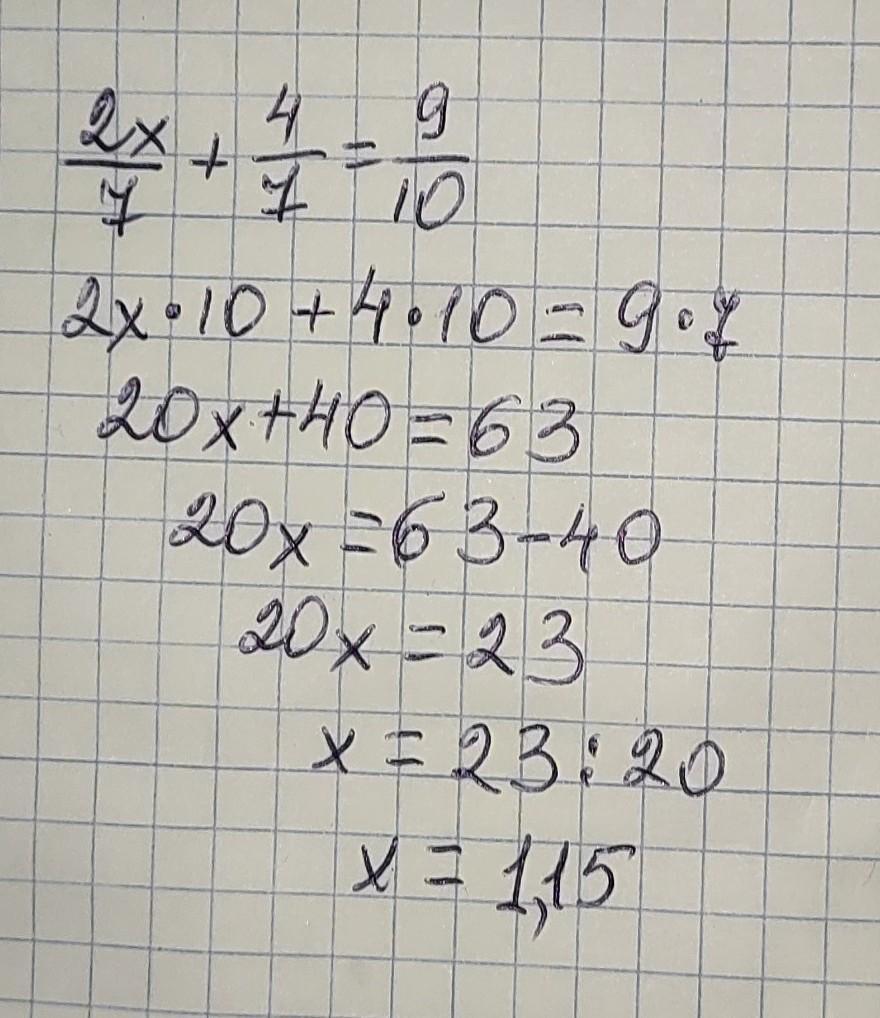 2x/7 + 4/7 = 9/10
2x·10 + 4·10 = 9·7
20x+40=63
20x=63-40
20x=23
x=23:20
x=1,15